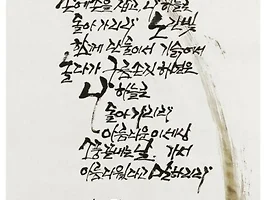 손에손을 잡고, 나 하늘로
돌아가리라 노을빛
함께 단둘이서 기슭에서
놀다가 구름 손짓하면은
나 하늘로
돌아가리라
아름다운 이 세상
소풍 끝내는 날, 가서
아름다웠다고 말하리라